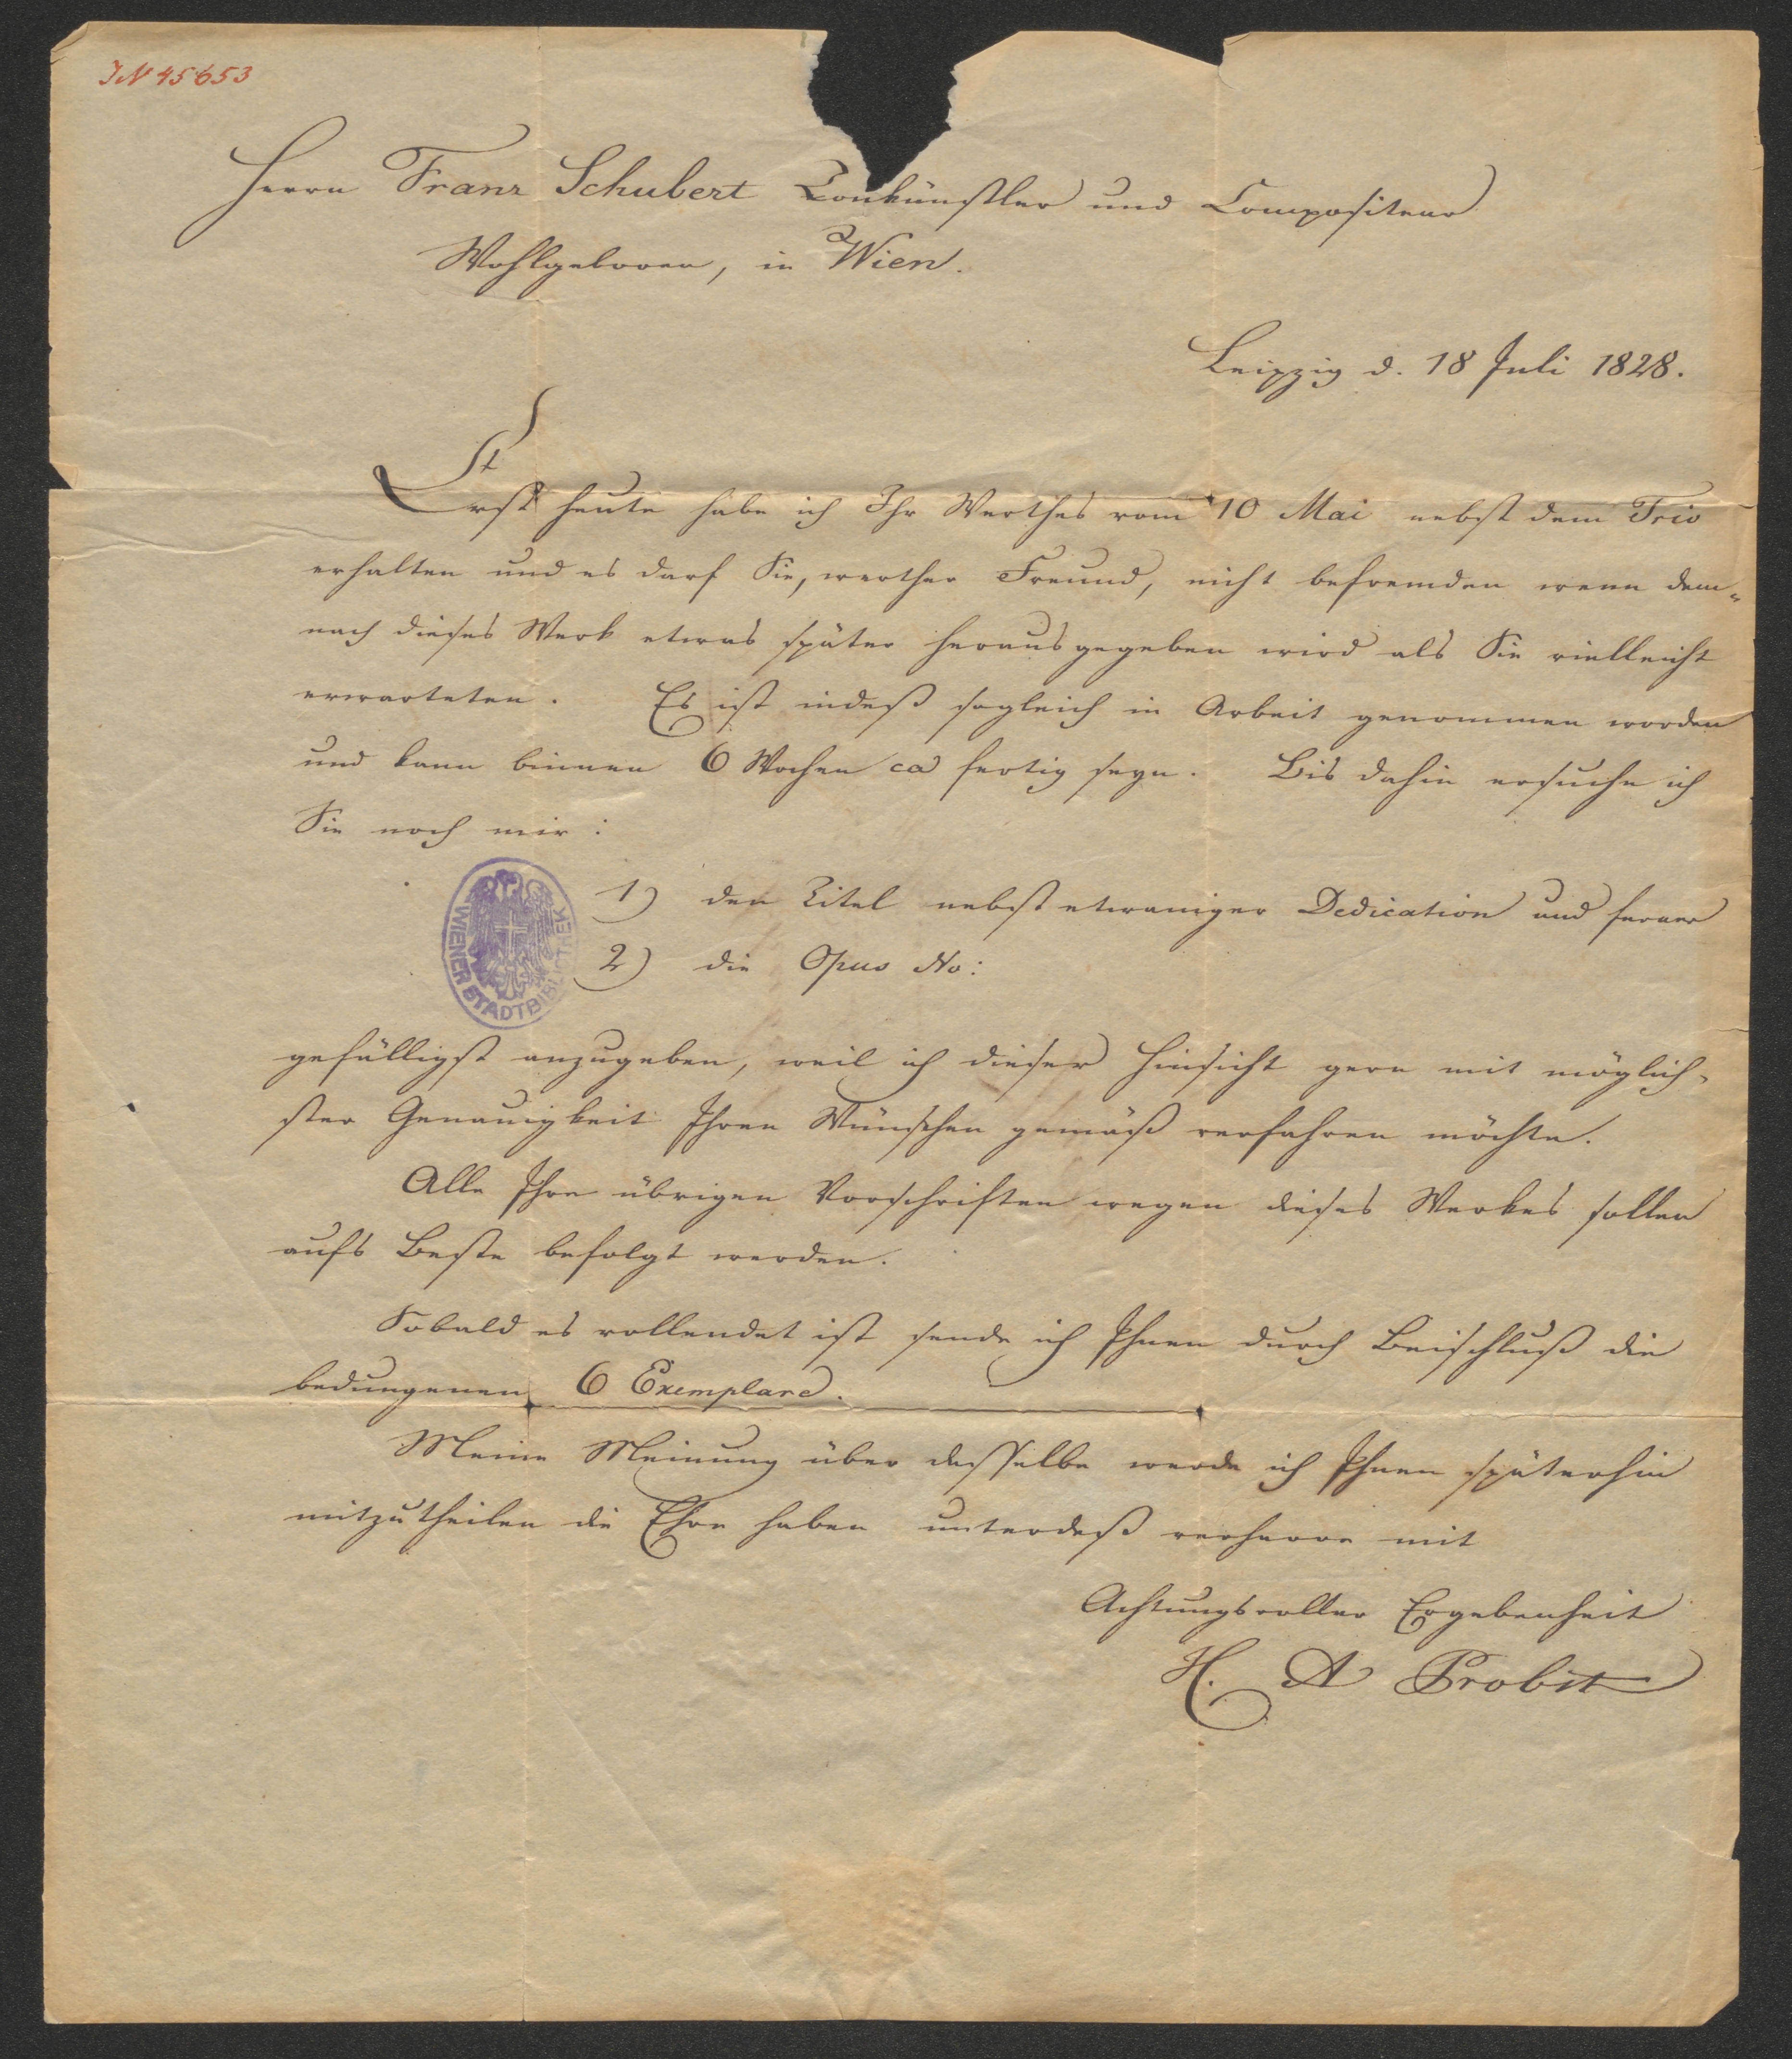 IN 45653
Herrn Franz Schubert Tonkünstler und Compositeur
Wohlgeboren, in Wien.
Leipzig d. 18 Juli 1828.
Erst heute habe ich Ihr Werthes vom 10 Mai nebst dem Trio
erhalten und es darf Sie, werther Freund, nicht befremden wenn dem-
nach dieses Werk etwas später herausgegeben wird als Sie vielleicht
erwarteten. Es ist indeß sogleich in Arbeit genommen worden
und kann binnen 6 Wochen ca fertig seyn. Bis dahin ersuche ich
Sie noch mir:
1) den Titel nebst etwaniger Dedication und ferner
2) die Opus No:
WIENER STADTBIBLIOTHEK
gefälligst anzugeben, weil ich dieser Hinsicht gern mit möglich-
ster Genauigkeit Ihren Wünschen gemäß verfahren möchte.
Alle Ihre übrigen Vorschriften wegen dieses Werkes sollen
aufs Beste befolgt werden.
Sobald es vollendet ist sende ich Ihnen durch Beischluß die
bedungenen 6 Exemplare.
Meine Meinung über dasselbe werde ich Ihnen späterhin
mitzutheilen die Ehre haben unterdeß verharre mit
Achtungsvoller Ergebenheit
H. A Probst